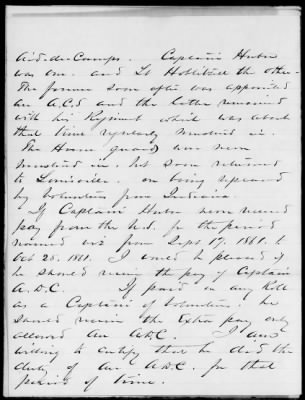 Aid-de-Camps. Captain Huber
was one. and Lt Hollitzell the other.
The former soon after was appointed
an A.C.S and the latter remained
with his Regiment which was about
that time regularly mustered in.
The Home guards were never
mustered in. but soon returned
to Louisville. on being replaced
by Volunteers from Indiana.
If Captain Huber never received
pay from the U.S. for the period
named viz from Sept 17. 1861. to
Oct 25. 1861. I would be pleased if
he should receive the pay of Captain
A.D.C. If paid on any Roll
as a Captain of Volunteers. he
should receive the Extra pay only
allowed an A.D.C. I am
willing to certify that he did the
duty of an A.D.C. for that
period of time.